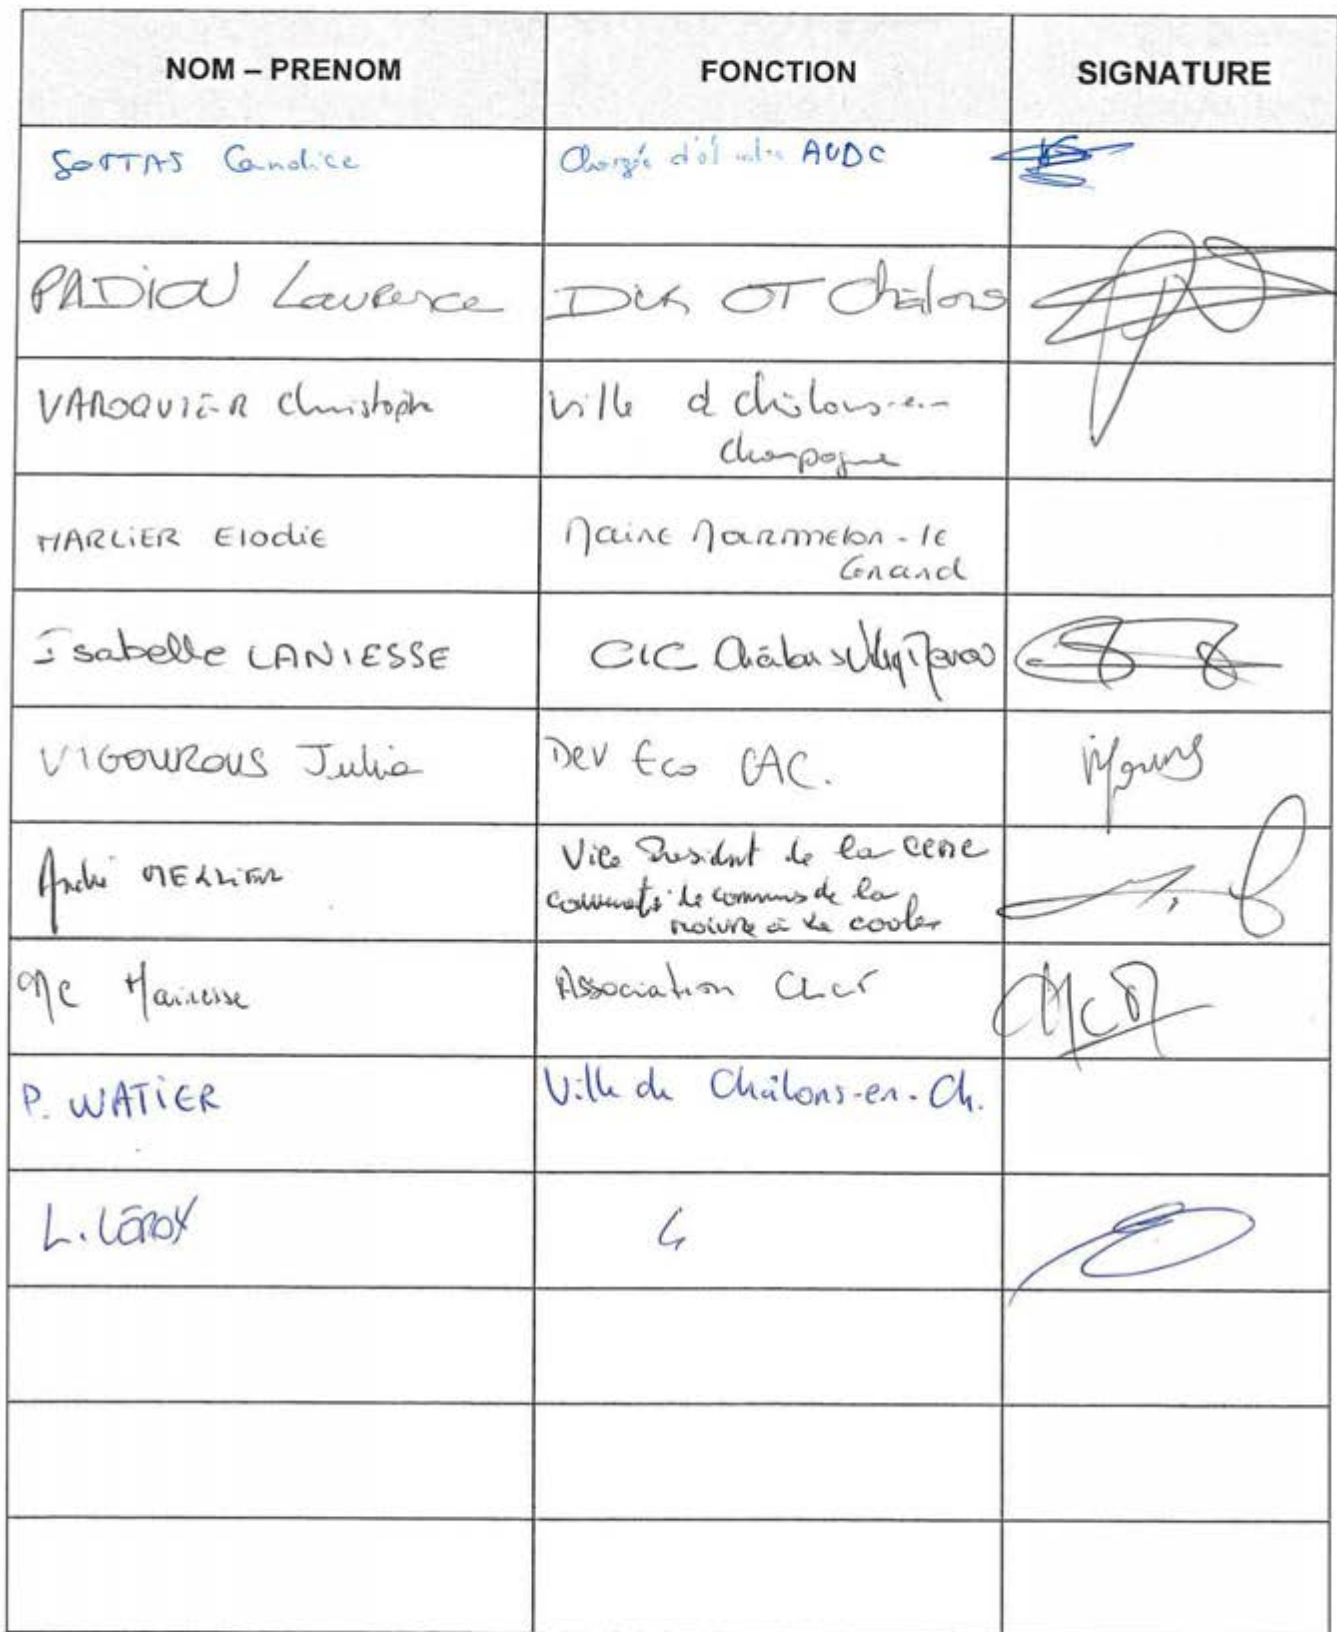 NOM – PRENOM FONCTION SIGNATURE
SOTTAS Candice Chargée AUDC
PADIOU Laurence Dir OT Châlons
VAROQUIER Christophe Ville d Châlons-en-
Champagne
MARLIER Elodie Mairie Mourmelon-le
Grand
Isabelle LANIESSE CIC Châlons
VIGOUROUS Julia Dev Eco CAC.
André MELLIER Vice President de la CCMC
de la
moivre à la coole
MC Mairesse Association
P. WATIER Ville de Châlons-en-Ch.
L. LEROY